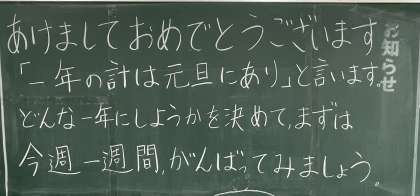 あけましておめでとうございます
「一年の計は元旦にあり」と言います。
どんな一年にしようかを決めて、まずは
今週一週間、がんばってみましょう。
お知らせ